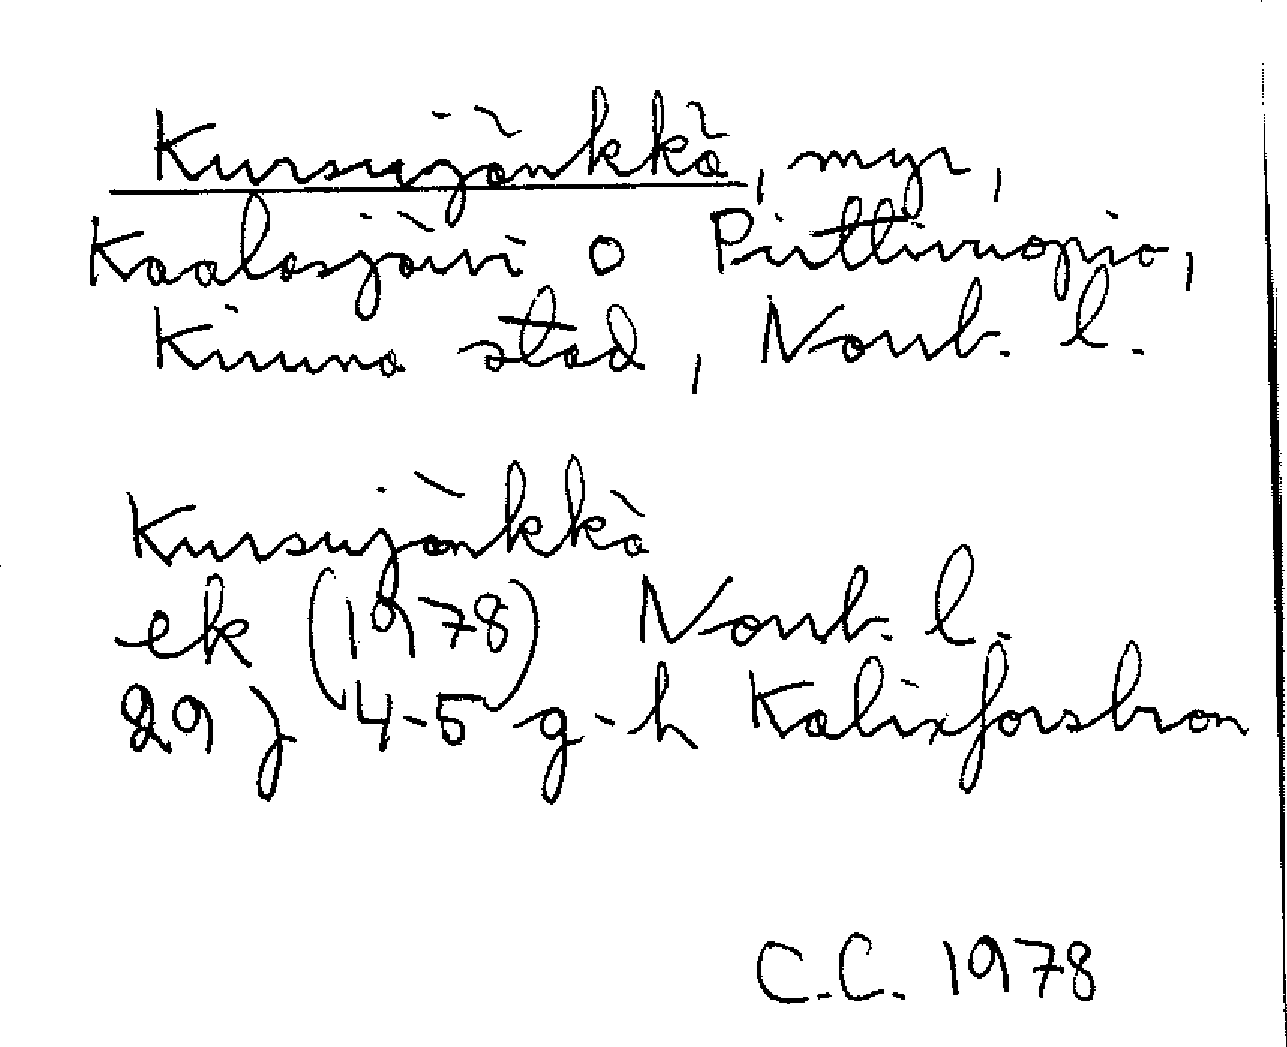 Kursujänkkä, myr,
Kaalasjärvi o Piittivuopio,
Kiruna stad, Norrb. l.
Kursujänkkä
ek (1978) Norrb. l.
29 J 4-5 g-h Kalixforsbron
C.C. 1978